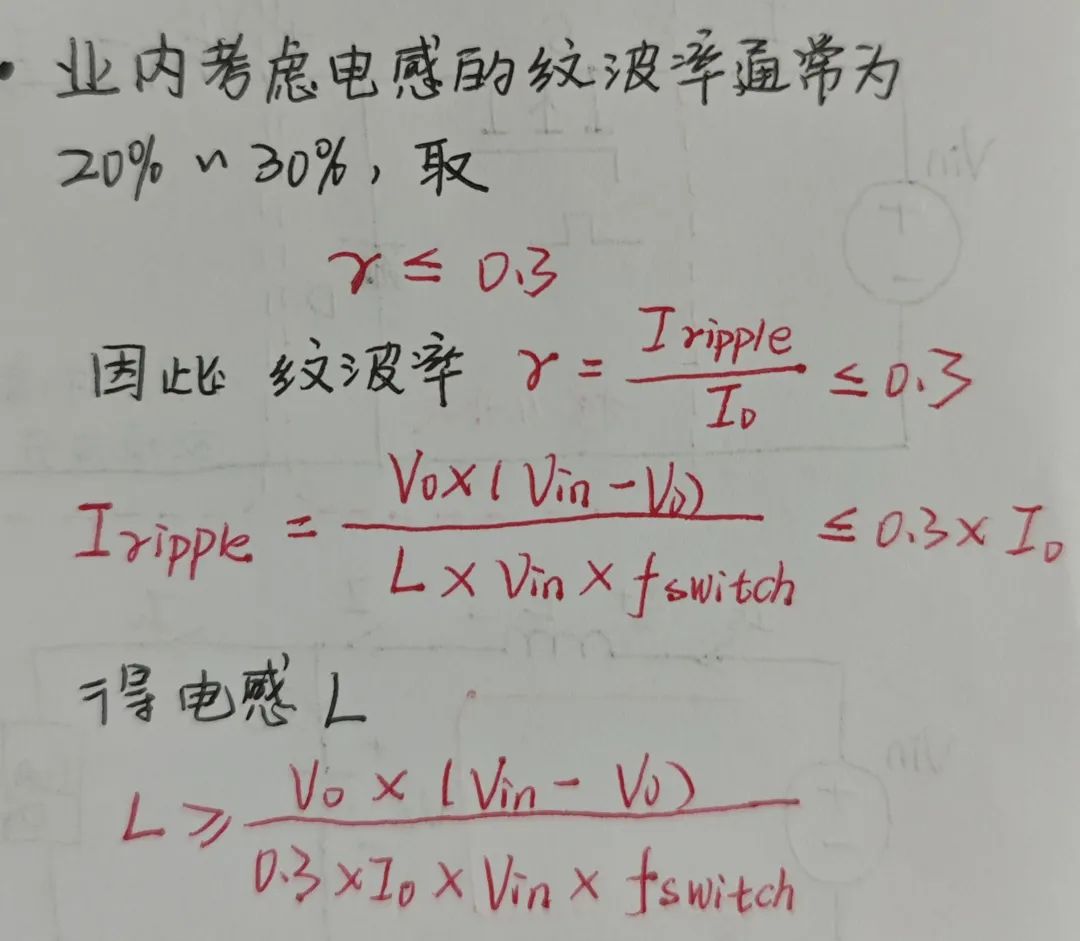 · 业内考虑电感的纹波率通常为
20% ~ 30%, 取
r ≤ 0.3
因此 纹波率 r = Iripple / Io ≤ 0.3
Iripple = Vo×(Vin-Vo) / L×Vin×fswitch ≤ 0.3×Io
得电感 L
L ≥ Vo×(Vin-Vo) / 0.3×Io×Vin×fswitch